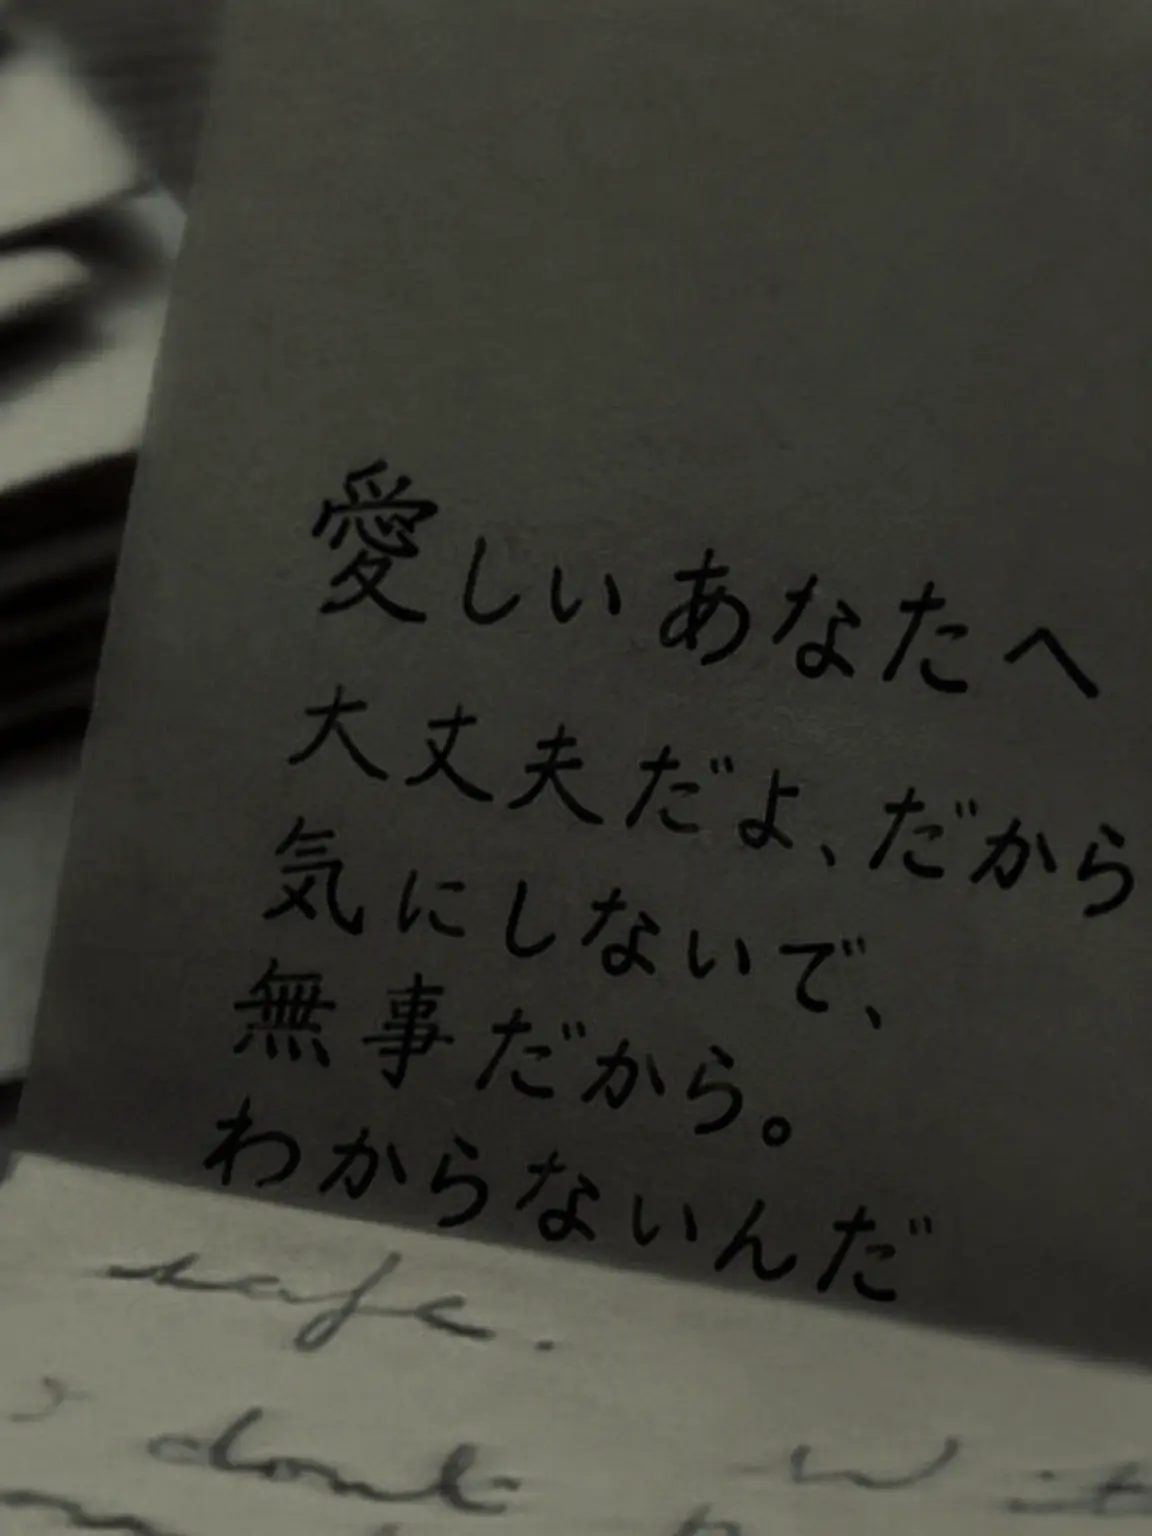 愛しいあなたへ
大丈夫だよ、だから
気にしないで、
無事だから。
わからないんだ
safe.
don't